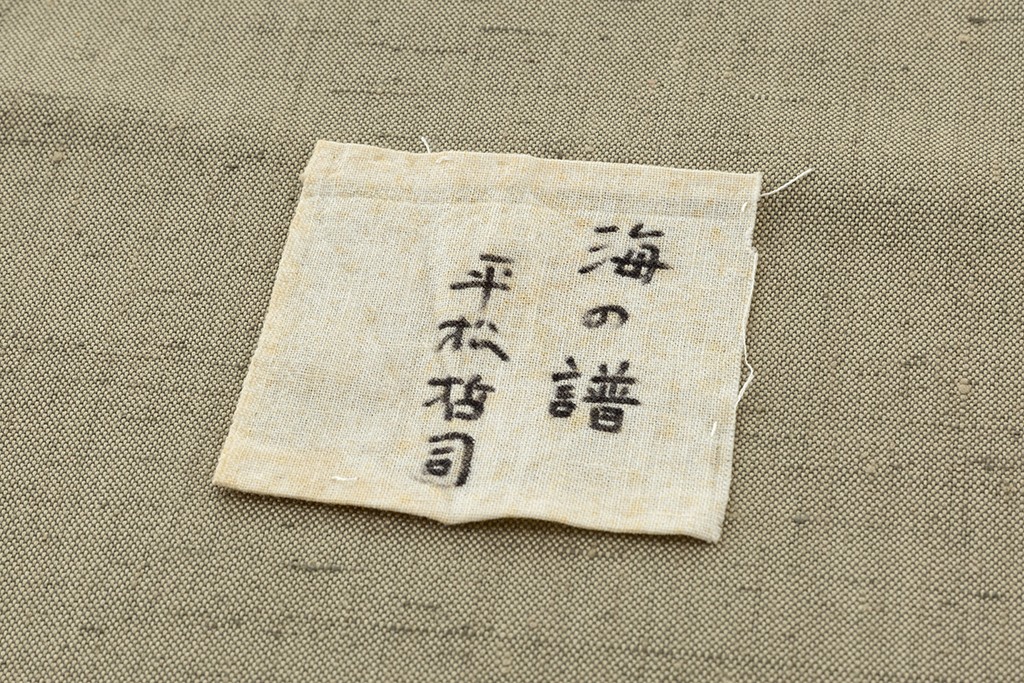 海の譜
平松哲司